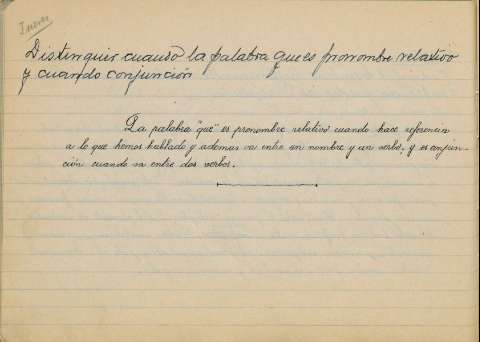 Distinguir cuando la palabra que es pronombre relativo
y cuando conjunción
La palabra "que" es pronombre relativo cuando hace referencia
a lo que hemos hablado y además va entre un nombre y un verbo; y es conjun-
ción cuando va entre dos verbos.